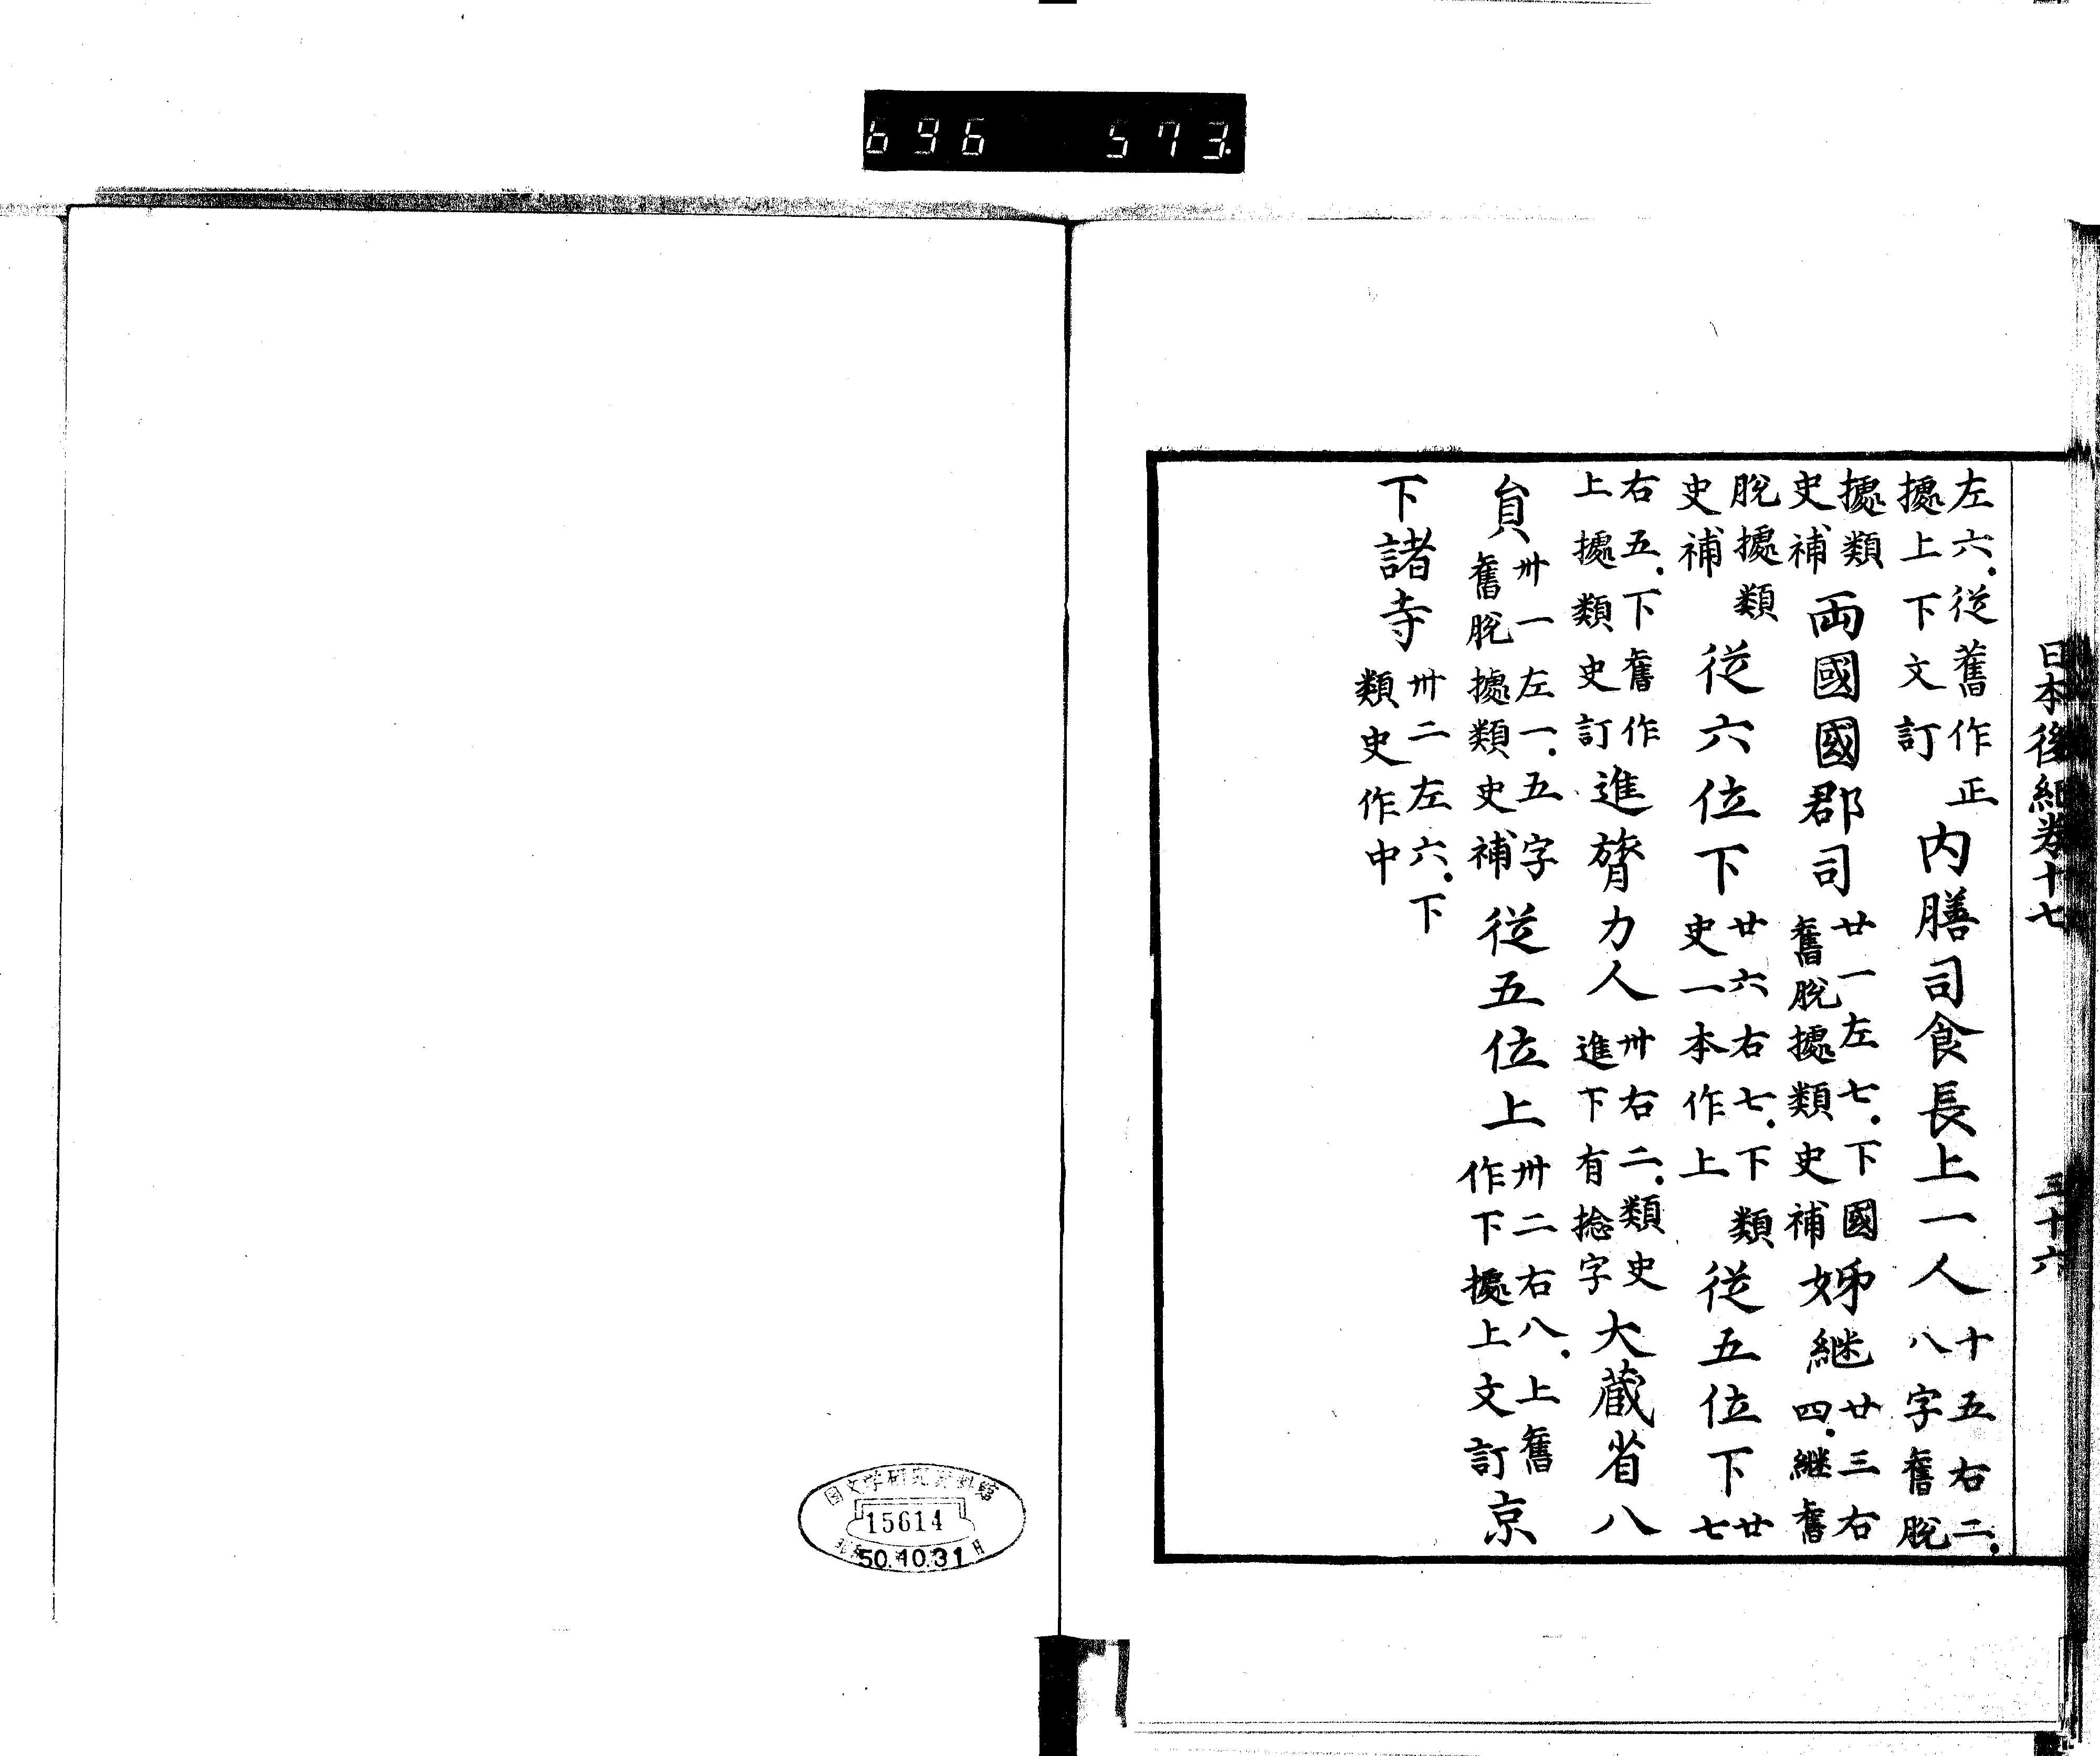 696 573.
日本後紀卷十七 三十六
左六．従舊作正據上下文訂 内膳司食長上一人 十五右二．八字舊脱
據類史補 両國國郡司 廿一左七．下國舊脱據類史補 姊継 廿三右四．継舊
脱據類史補 従六位下 廿六右七．下類史一本作上 従五位下 廿七
右五．下舊作上據類史訂 進膂力人 卅右二．類史進下有捻字 大蔵省八
員 卅一左一．五字舊脱據類史補 従五位上 卅二右八．上舊作下據上文訂 京
下諸寺 卅二左六．下類史作中
国文学研究資料館
15614
50.10.31